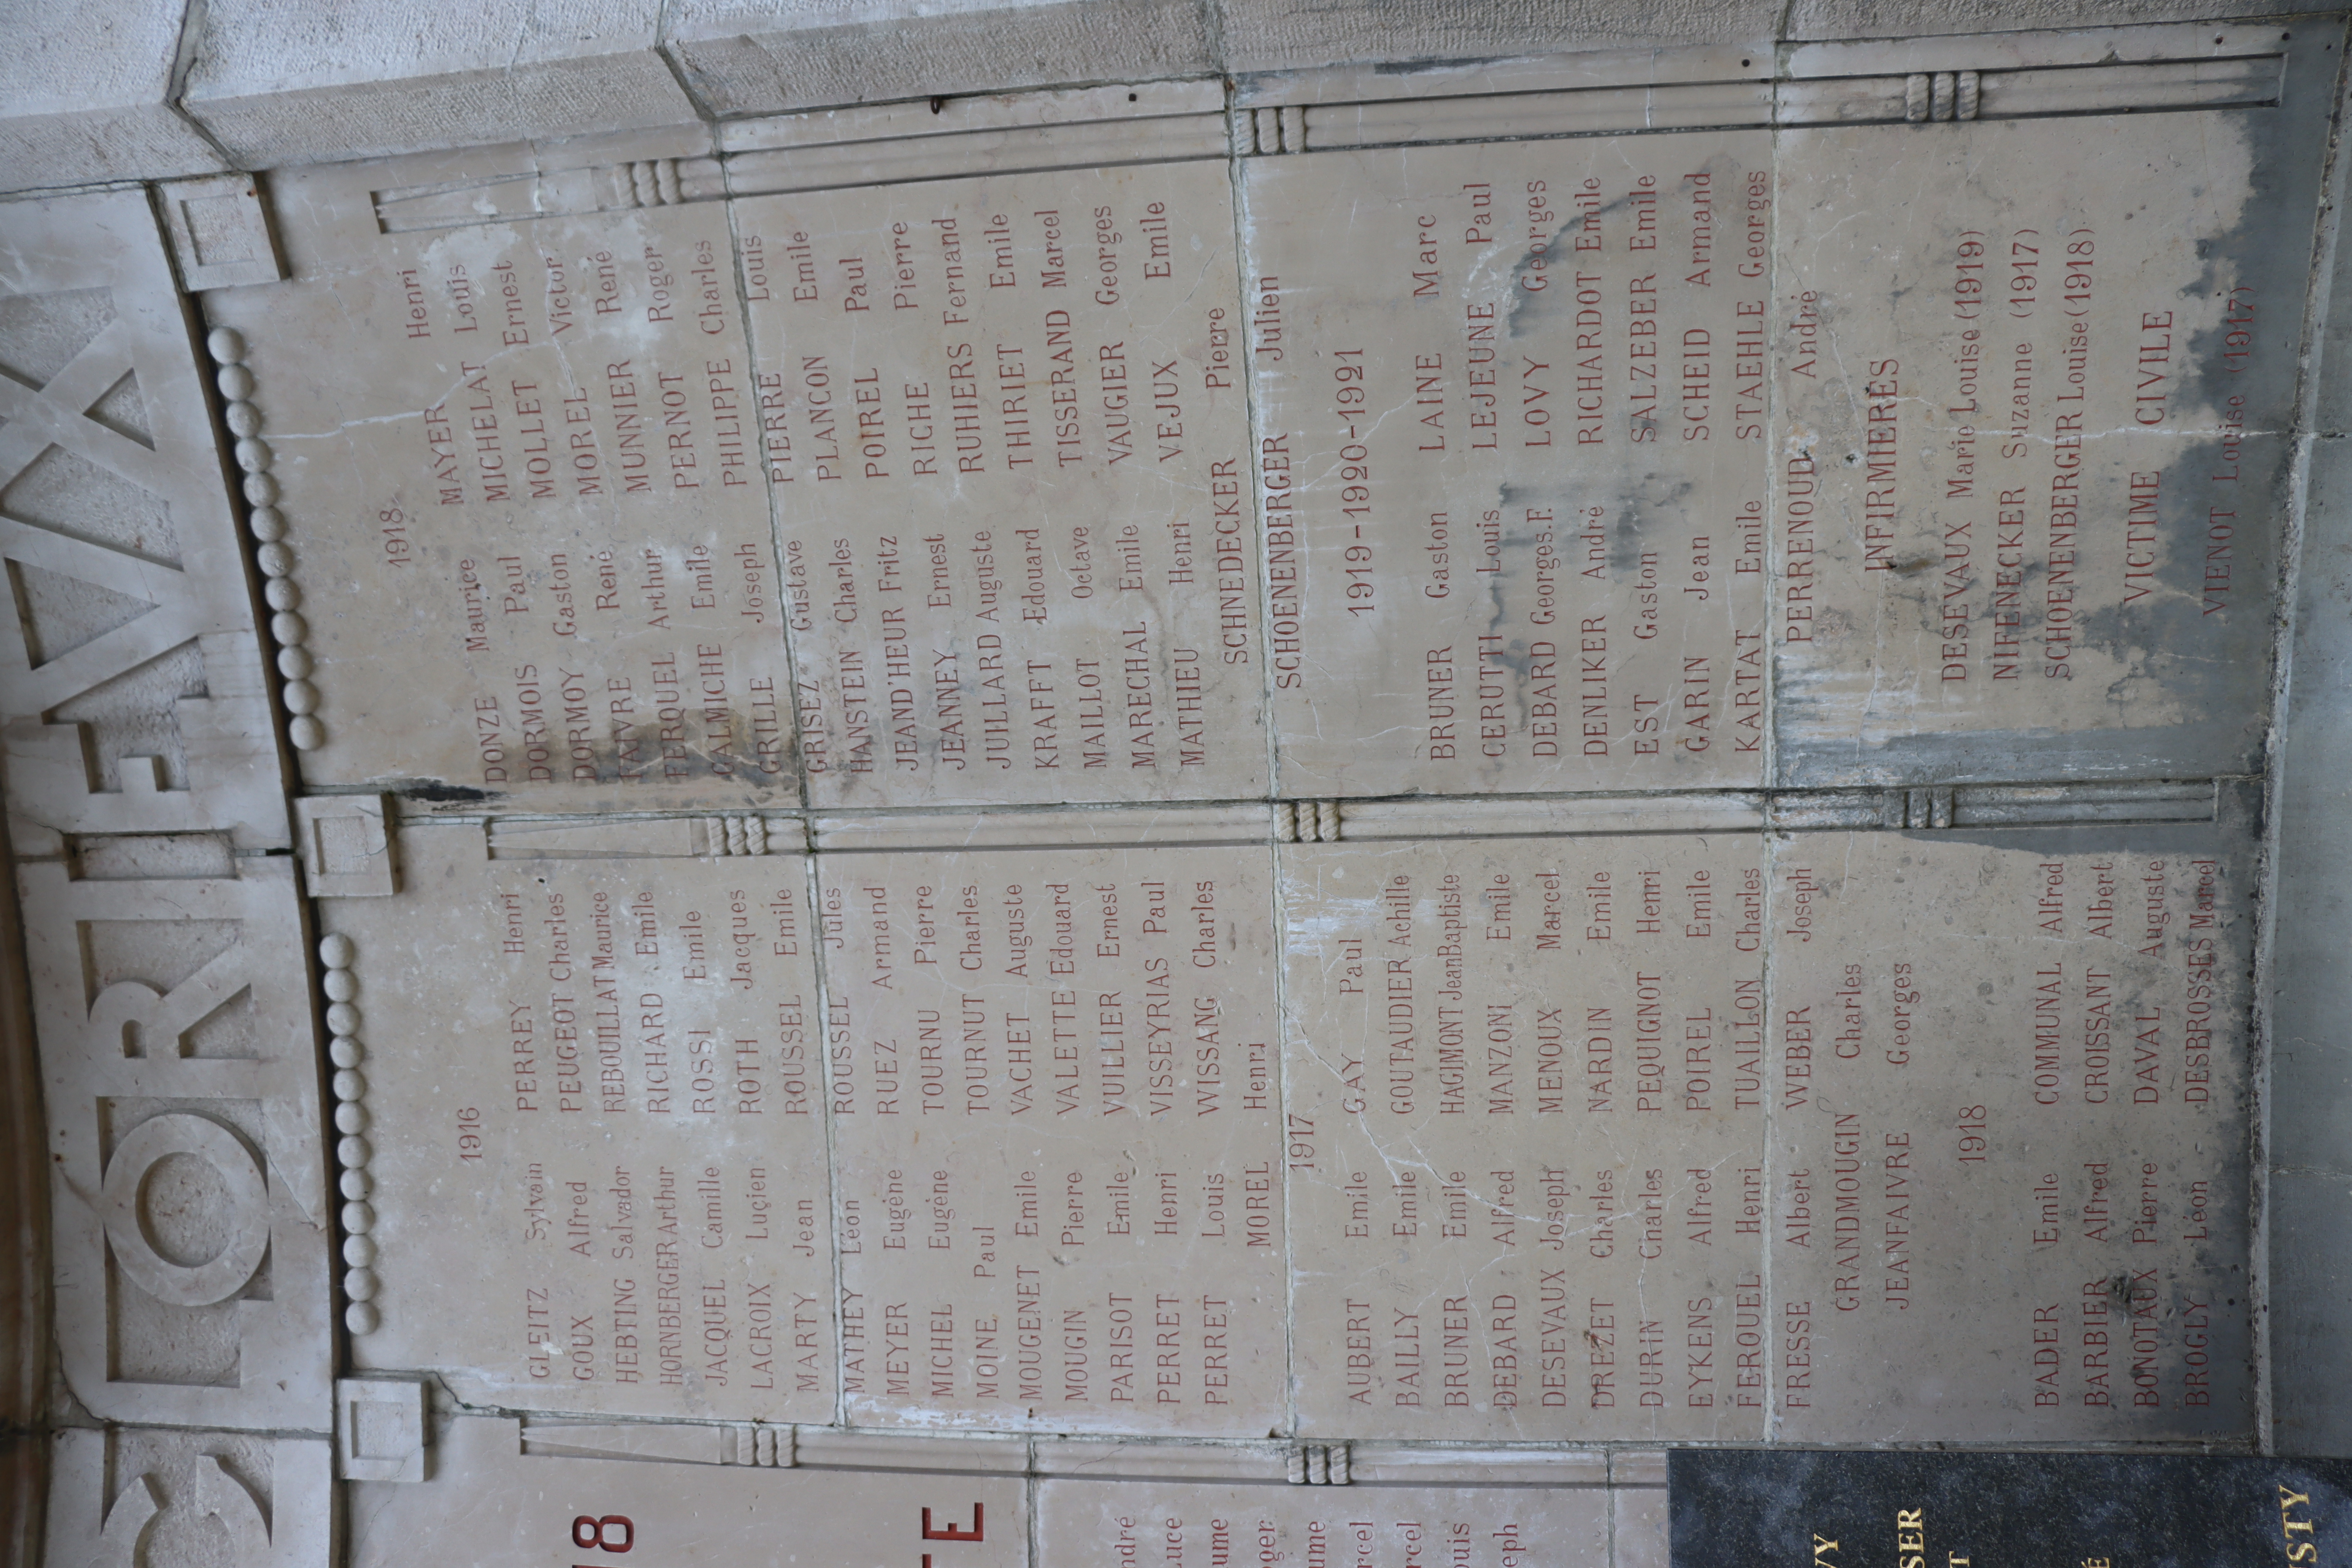 18
TE
1916
GLEITZ Sylvain
GOUX Alfred
HEBTING Salvador
HORNBERGER Arthur
JACQUEL Camille
LACROIX Lucien
MARTY Jean
MATHEY Léon
MEYER Eugène
MICHEL Eugène
MOINE Paul
MOUGENET Emile
MOUGIN Pierre
PARISOT Emile
PERRET Henri
PERRET Louis
PERREY Henri
PEUGEOT Charles
REBOUILLAT Maurice
RICHARD Emile
ROSSI Emile
ROTH Jacques
ROUSSEL Emile
ROUSSEL Jules
RUEZ Armand
TOURNU Pierre
TOURNUT Charles
VACHET Auguste
VALETTE Edouard
VUILLIER Ernest
VISSEYRIAS Paul
WISSANG Charles
MOREL Henri
1917
AUBERT Emile
BAILLY Emile
BRUNER Emile
DEBARD Alfred
DESEVAUX Joseph
DREZET Charles
DURIN Charles
EYKENS Alfred
FEROUEL Henri
FRESSE Albert
GAY Paul
GOUTAUDIER Achille
HAGIMONT Jean Baptiste
MANZONI Emile
MENOUX Marcel
NARDIN Emile
PEQUIGNOT Henri
POIREL Emile
TUAILLON Charles
WEBER Joseph
GRANDMOUGIN Charles
JEANFAIVRE Georges
1918
BADER Emile
BARBIER Alfred
BONOTAUX Pierre
BROGLY Léon
COMMUNAL Alfred
CROISSANT Albert
DAVAL Auguste
DESBROSSES Marcel
1918
DONZE Maurice
DORMOIS Paul
DORMOY Gaston
FAIVRE René
FERQUEL Arthur
GALMICHE Emile
GRILLE Joseph
GRISEZ Gustave
HANSTEIN Charles
JEAND'HEUR Fritz
JEANNEY Ernest
JUILLARD Auguste
KRAFFT Edouard
MAILLOT Octave
MARECHAL Emile
MATHIEU Henri
MAYER Henri
MICHELAT Louis
MOLLET Ernest
MOREL Victor
MUNNIER René
PERNOT Roger
PHILIPPE Charles
PIERRE Louis
PLANCON Emile
POIREL Paul
RICHE Pierre
RUHIERS Fernand
THIRIET Emile
TISSERAND Marcel
VAUGIER Georges
VEJUX Emile
SCHNEDECKER Pierre
SCHOENENBERGER Julien
1919-1920-1921
BRUNER Gaston
CERUTTI Louis
DEBARD Georges.F.
DENLIKER André
EST Gaston
GARIN Jean
KARTAT Emile
LAINE Marc
LEJEUNE Paul
LOVY Georges
RICHARDOT Emile
SALZEBER Emile
SCHEID Armand
STAEHLE Georges
PERRENOUD André
INFIRMIERES
DESEVAUX Marie Louise (1919)
NIFENECKER Suzanne (1917)
SCHOENENBERGER Louise (1918)
VICTIME CIVILE
VIENOT Louise (1917)